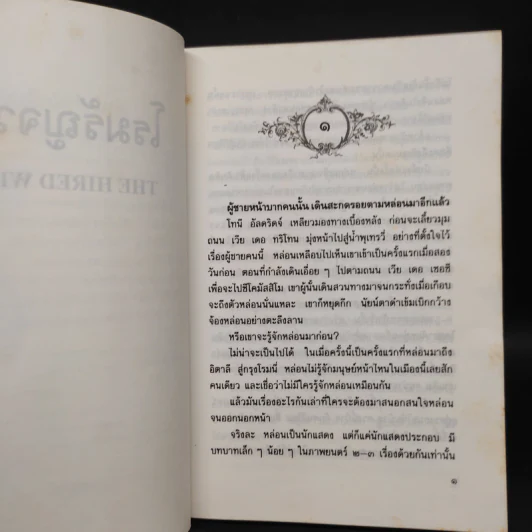 โรมรัญจว
THE HIRED WI
๑
ผู้ชายหน้าบากคนนั้น เดินสะกดรอยตามหล่อนมาอีกแล้ว
โทนี อัลดริดจ์ เหลียวมองทางเบื้องหลัง ก่อนจะเลี้ยวมุม
ถนน เวีย เดอ ทริโทน มุ่งหน้าไปสู่น้ำพุเทรวี่ อย่างที่ตั้งใจไว้
เรื่องผู้ชายคนนี้ หล่อนเหลือบไปเห็นเขาเข้าเป็นครั้งแรกเมื่อสอง
วันก่อน ตอนที่กำลังเดินเอื่อย ๆ ไปตามถนน เวีย เดอ เซอชี
เพื่อจะไปซีโคมัสสิโม เขาผู้นั้นเดินสวนทางมาจนกระทั่งเมื่อเกือบ
จะถึงตัวหล่อนนั่นแหละ เขาก็หยุดกึก นัยน์ตาดำเข้มเบิกกว้าง
จ้องหล่อนอย่างตะลึงลาน
หรือเขาจะรู้จักหล่อนมาก่อน?
ไม่น่าจะเป็นไปได้ ในเมื่อครั้งนี้เป็นครั้งแรกที่หล่อนมาถึง
อิตาลี สู่กรุงโรมนี่ หล่อนไม่รู้จักมนุษย์หน้าไหนในเมืองนี้เลยสัก
คนเดียว และเชื่อว่าไม่มีใครรู้จักหล่อนเหมือนกัน
แล้วมันเรื่องอะไรกันเล่าที่ใครจะต้องมาสนอกสนใจหล่อน
จนออกนอกหน้า
จริงละ หล่อนเป็นนักแสดง แต่ก็แค่นักแสดงประกอบ มี
บทบาทเล็ก ๆ น้อย ๆ ในภาพยนตร์ ๒–๓ เรื่องด้วยกันเท่านั้น
๑